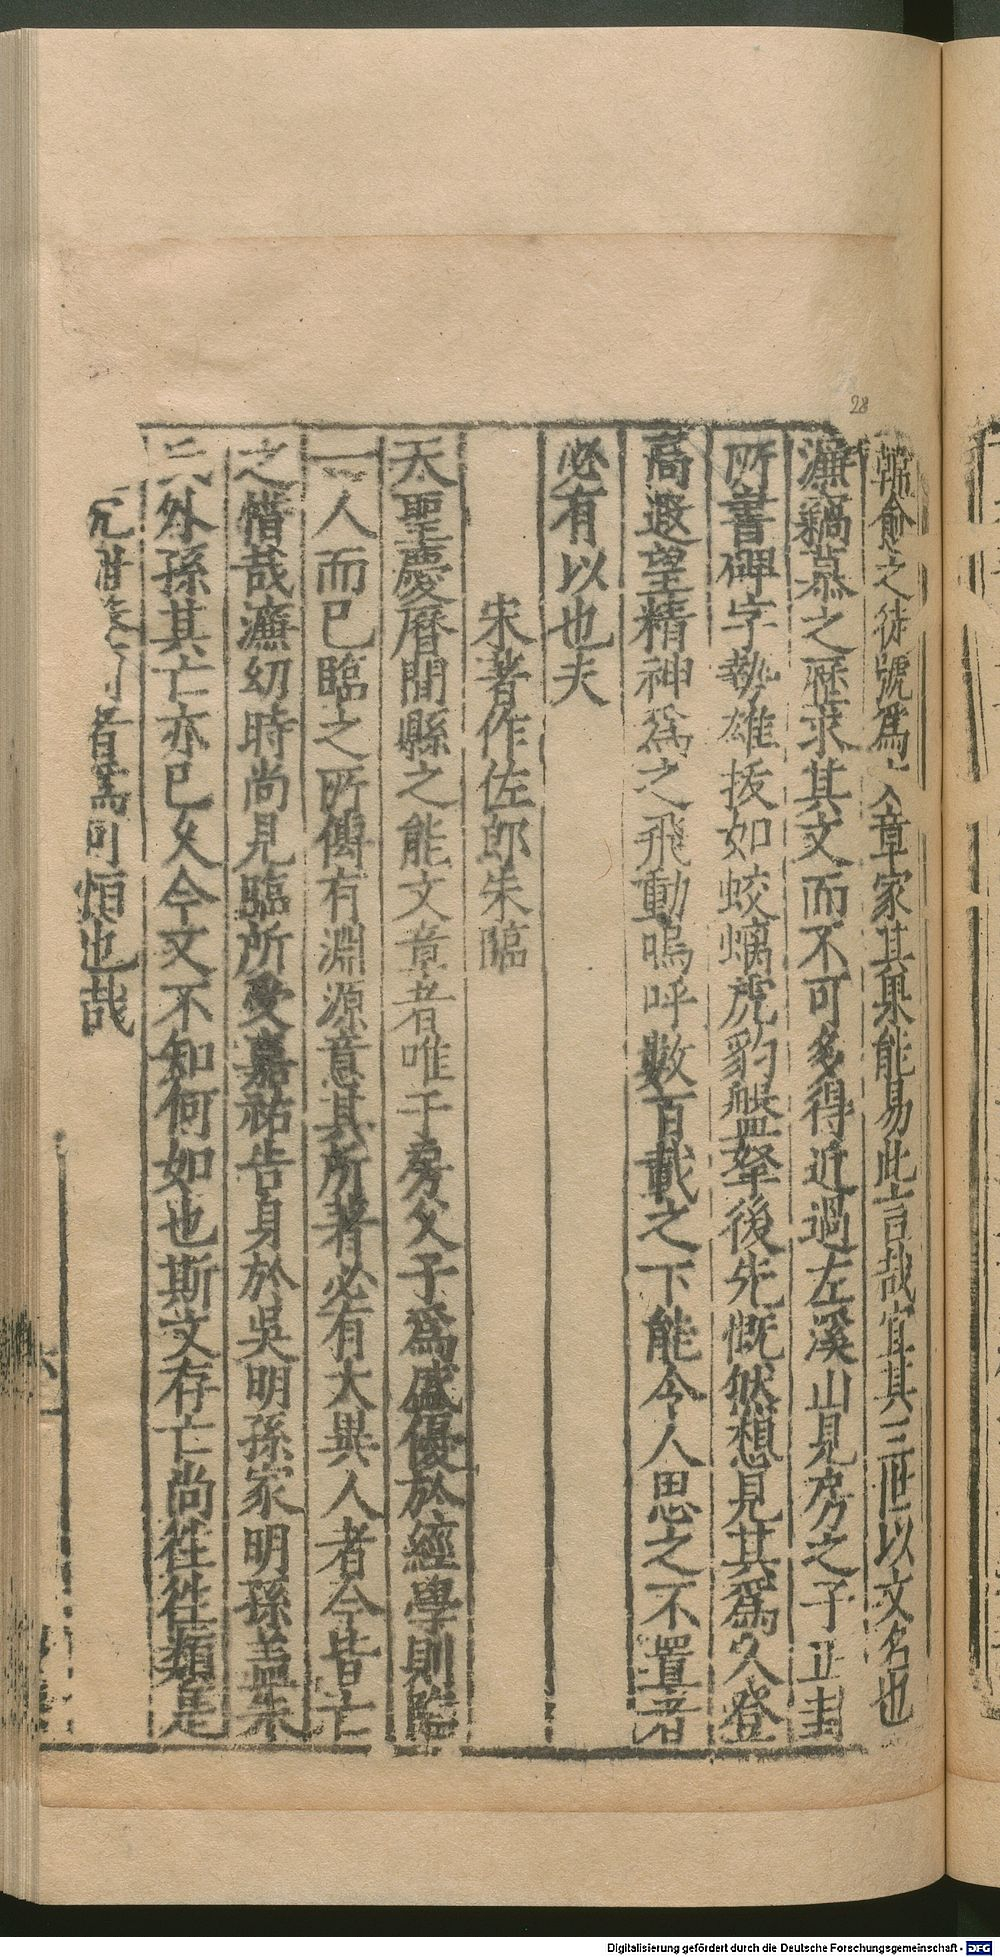 韓愈之徒號爲文章家其臭能易此言哉宜其三世以文名也
濂竊慕之歷求其文而不可多得近過左溪山見房之子正封
所書碑字勢雄拔如蛟螭虎豹盤拏後先慨然想見其爲人登
高遐望精神爲之飛動嗚呼數百載之下能令人思之不置者
必有以也夫
宋著作佐郎朱臨
天聖慶曆間縣之能文章者唯于房父子爲盛優於經學則臨
一人而已臨之所傳有淵源意其所著必有大異人者今皆亡
之惜哉濂幼時尚見臨所受嘉祐告身於吳明孫家明孫蓋朱
氏外孫其亡亦已久今文不知何如也斯文存亡尚徃徃類是
况世 者焉可恒也哉
28
Digitalisierung gefördert durch die Deutsche Forschungsgemeinschaft - DFG